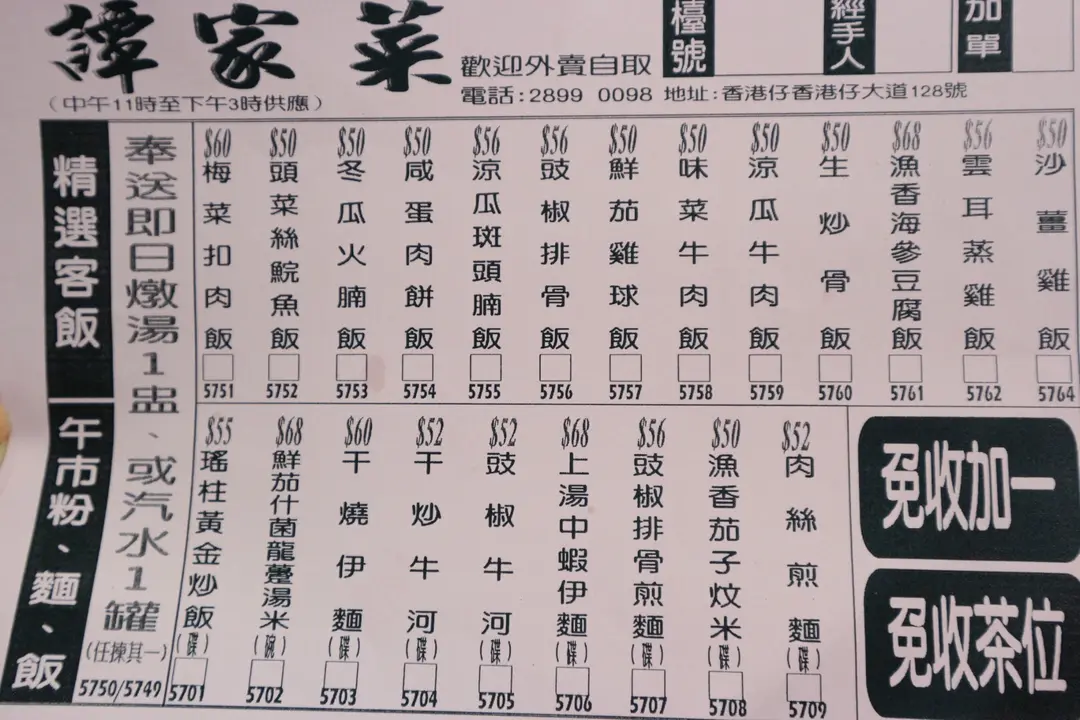 譚家菜
(中午11時至下午3時供應)
歡迎外賣自取
電話:2899 0098 地址:香港仔香港仔大道128號
檯號
經手人
加單
精選客飯
午市粉、麵、飯
奉送即日燉湯1盅、或汽水1罐
(任揀其一)
5750/5749
$60 梅菜扣肉飯 5751
$50 頭菜絲鯇魚飯 5752
$50 冬瓜火腩飯 5753
$50 咸蛋肉餅飯 5754
$56 涼瓜斑頭腩飯 5755
$56 豉椒排骨飯 5756
$50 鮮茄雞球飯 5757
$50 味菜牛肉飯 5758
$50 涼瓜牛肉飯 5759
$50 生炒骨飯 5760
$68 漁香海參豆腐飯 5761
$56 雲耳蒸雞飯 5762
$50 沙薑雞飯 5764
$55 瑤柱黃金炒飯(碟) 5701
$68 鮮茄什菌龍躉湯米(碗) 5702
$60 干燒伊麵(碟) 5703
$52 干炒牛河(碟) 5704
$52 豉椒牛河(碟) 5705
$68 上湯中蝦伊麵(碟) 5706
$56 豉椒排骨煎麵(碟) 5707
$50 漁香茄子炆米(碟) 5708
$52 肉絲煎麵(碟) 5709
免收加一
免收茶位